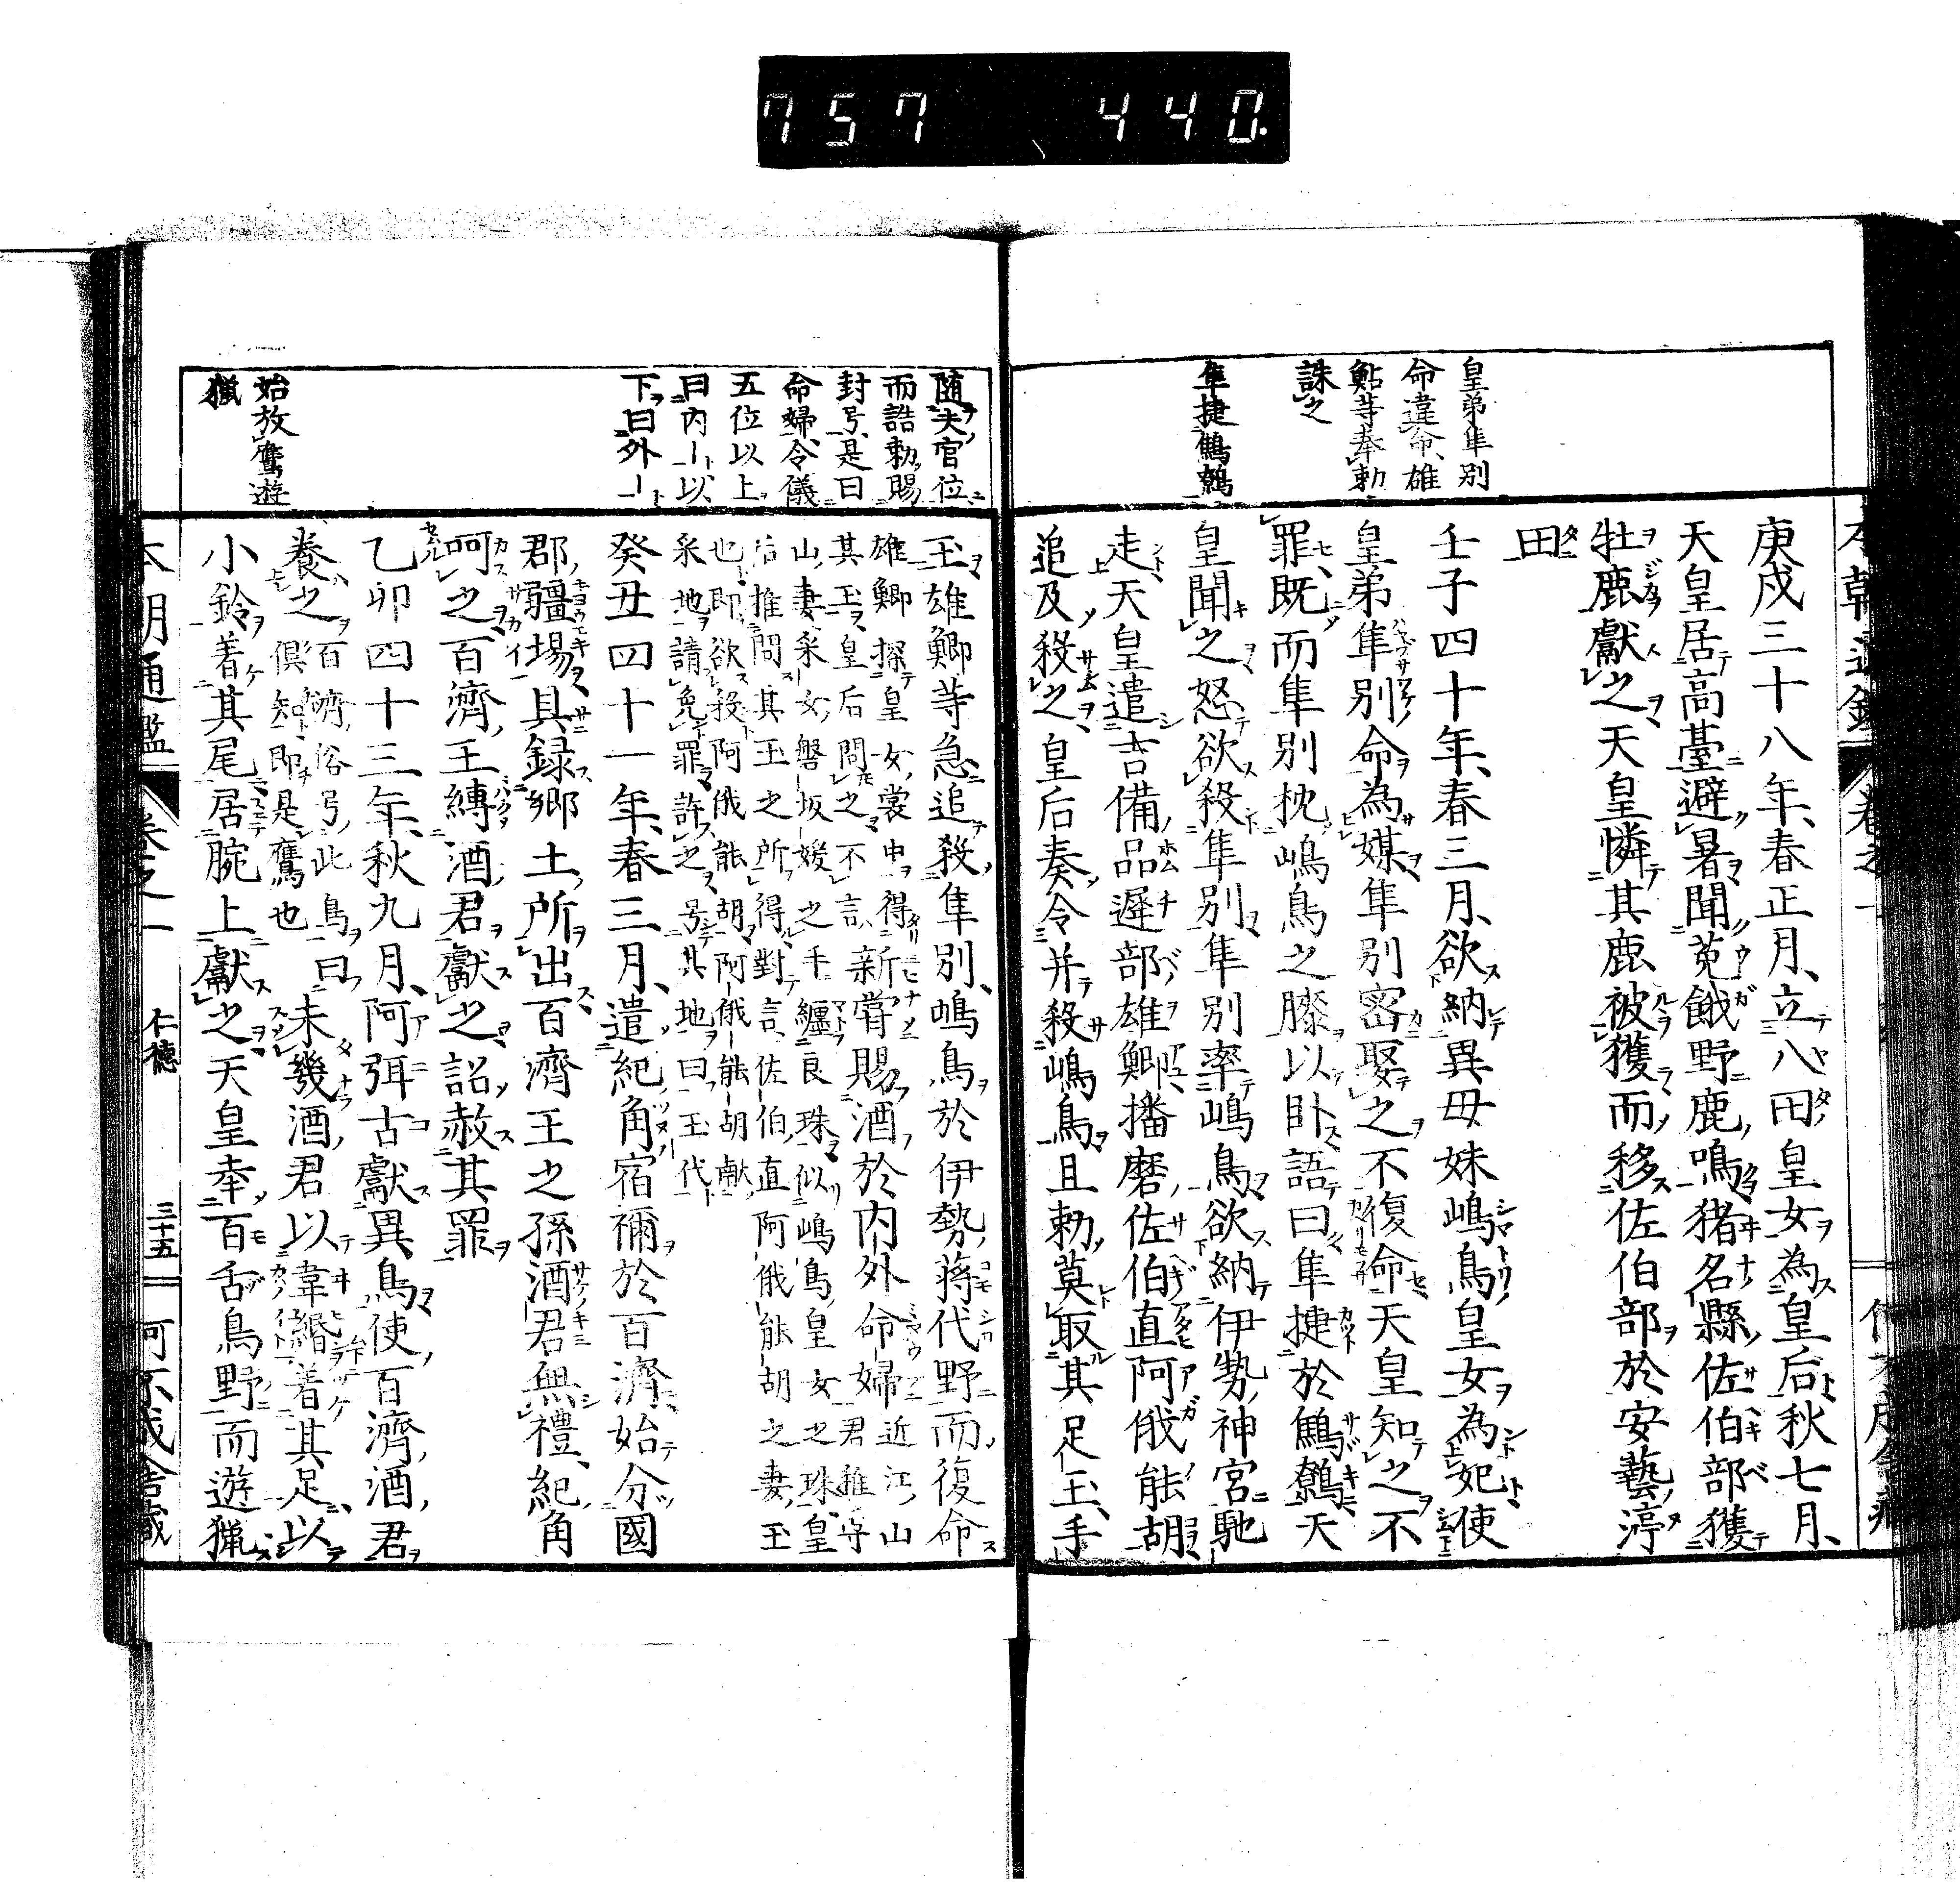 757 440.
皇弟隼別
命違命、雄
鮎等奉勅
誅之
隼捷鷦鷯
庚戌三十八年、春正月、立八田皇女為皇后、秋七月、
天皇居高臺避暑聞菟餓野鹿鳴猪名縣佐伯部獲
牡鹿獻之天皇憐其鹿被獲而移佐伯部於安藝渟
田
壬子四十年、春三月、欲納異母妹嶋鳥皇女為妃使
皇弟隼別命為媒隼別密娶之不復命天皇知之不
罪既而隼別枕嶋鳥之膝以卧語曰隼捷於鷦鷯天
皇聞之怒欲殺隼別隼別率嶋鳥欲納伊勢神宮馳
走天皇遣吉備品遲部雄鯽播磨佐伯直阿俄能胡
追及殺之皇后奏令并殺嶋鳥且勅莫取其足玉、手
随夫官位
而誥勅賜
封号、是曰
命婦、令儀
五位以上
曰内一以
下曰外一
始放鷹遊
獵
玉雄鯽等急追殺隼別、嶋鳥於伊勢蒋代野而復命
雄鯽探皇女裳中得
其玉皇后問之不言、
新嘗賜酒於内外命婦
近江山
君稚守
山妻采女磐坂媛之手纏良珠似嶋鳥皇女之珠皇
后推問其玉之所得對言、佐伯直阿俄能胡之妻玉
也即欲殺阿俄能胡阿俄能胡獻
采地請免罪許之号其地曰玉代
癸丑四十一年、春三月、遣紀角宿禰於百濟始分國
郡疆場具録郷土所出百濟王之孫酒君無禮、紀角
呵之百濟王縛酒君獻之、詔赦其罪
乙卯四十三年、秋九月、阿弭古獻異鳥使百濟酒君
養之
百濟俗号此鳥曰
倶知、即是鷹也
未幾酒君以韋緡着其足以
小鈴着其尾居腕上獻之天皇幸百舌鳥野而遊獵
本朝通鑑 卷之一 仁德 三十五